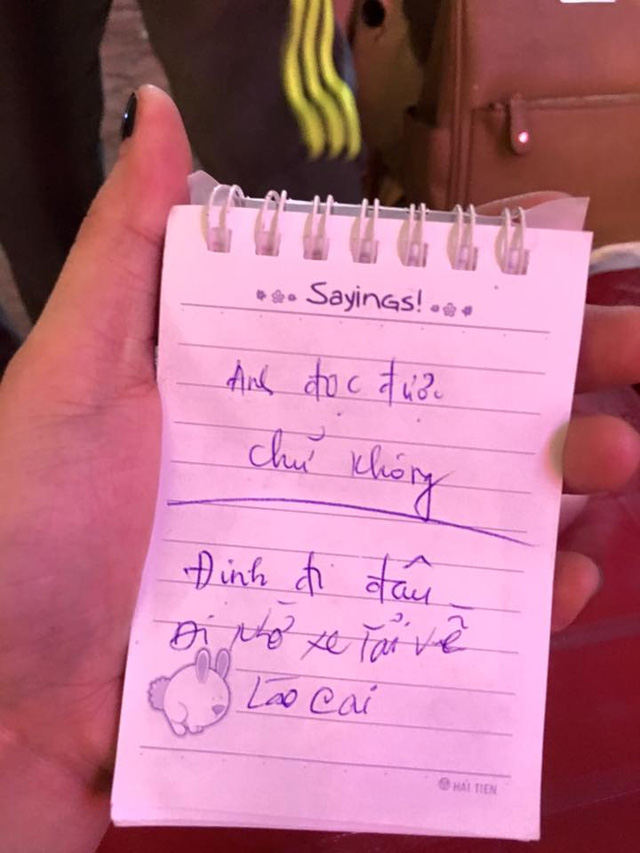 Sayings!
Anh đọc được
chữ không
Định đi đâu
Đi nhờ xe tải về
Lào Cai
HẢI TIẾN